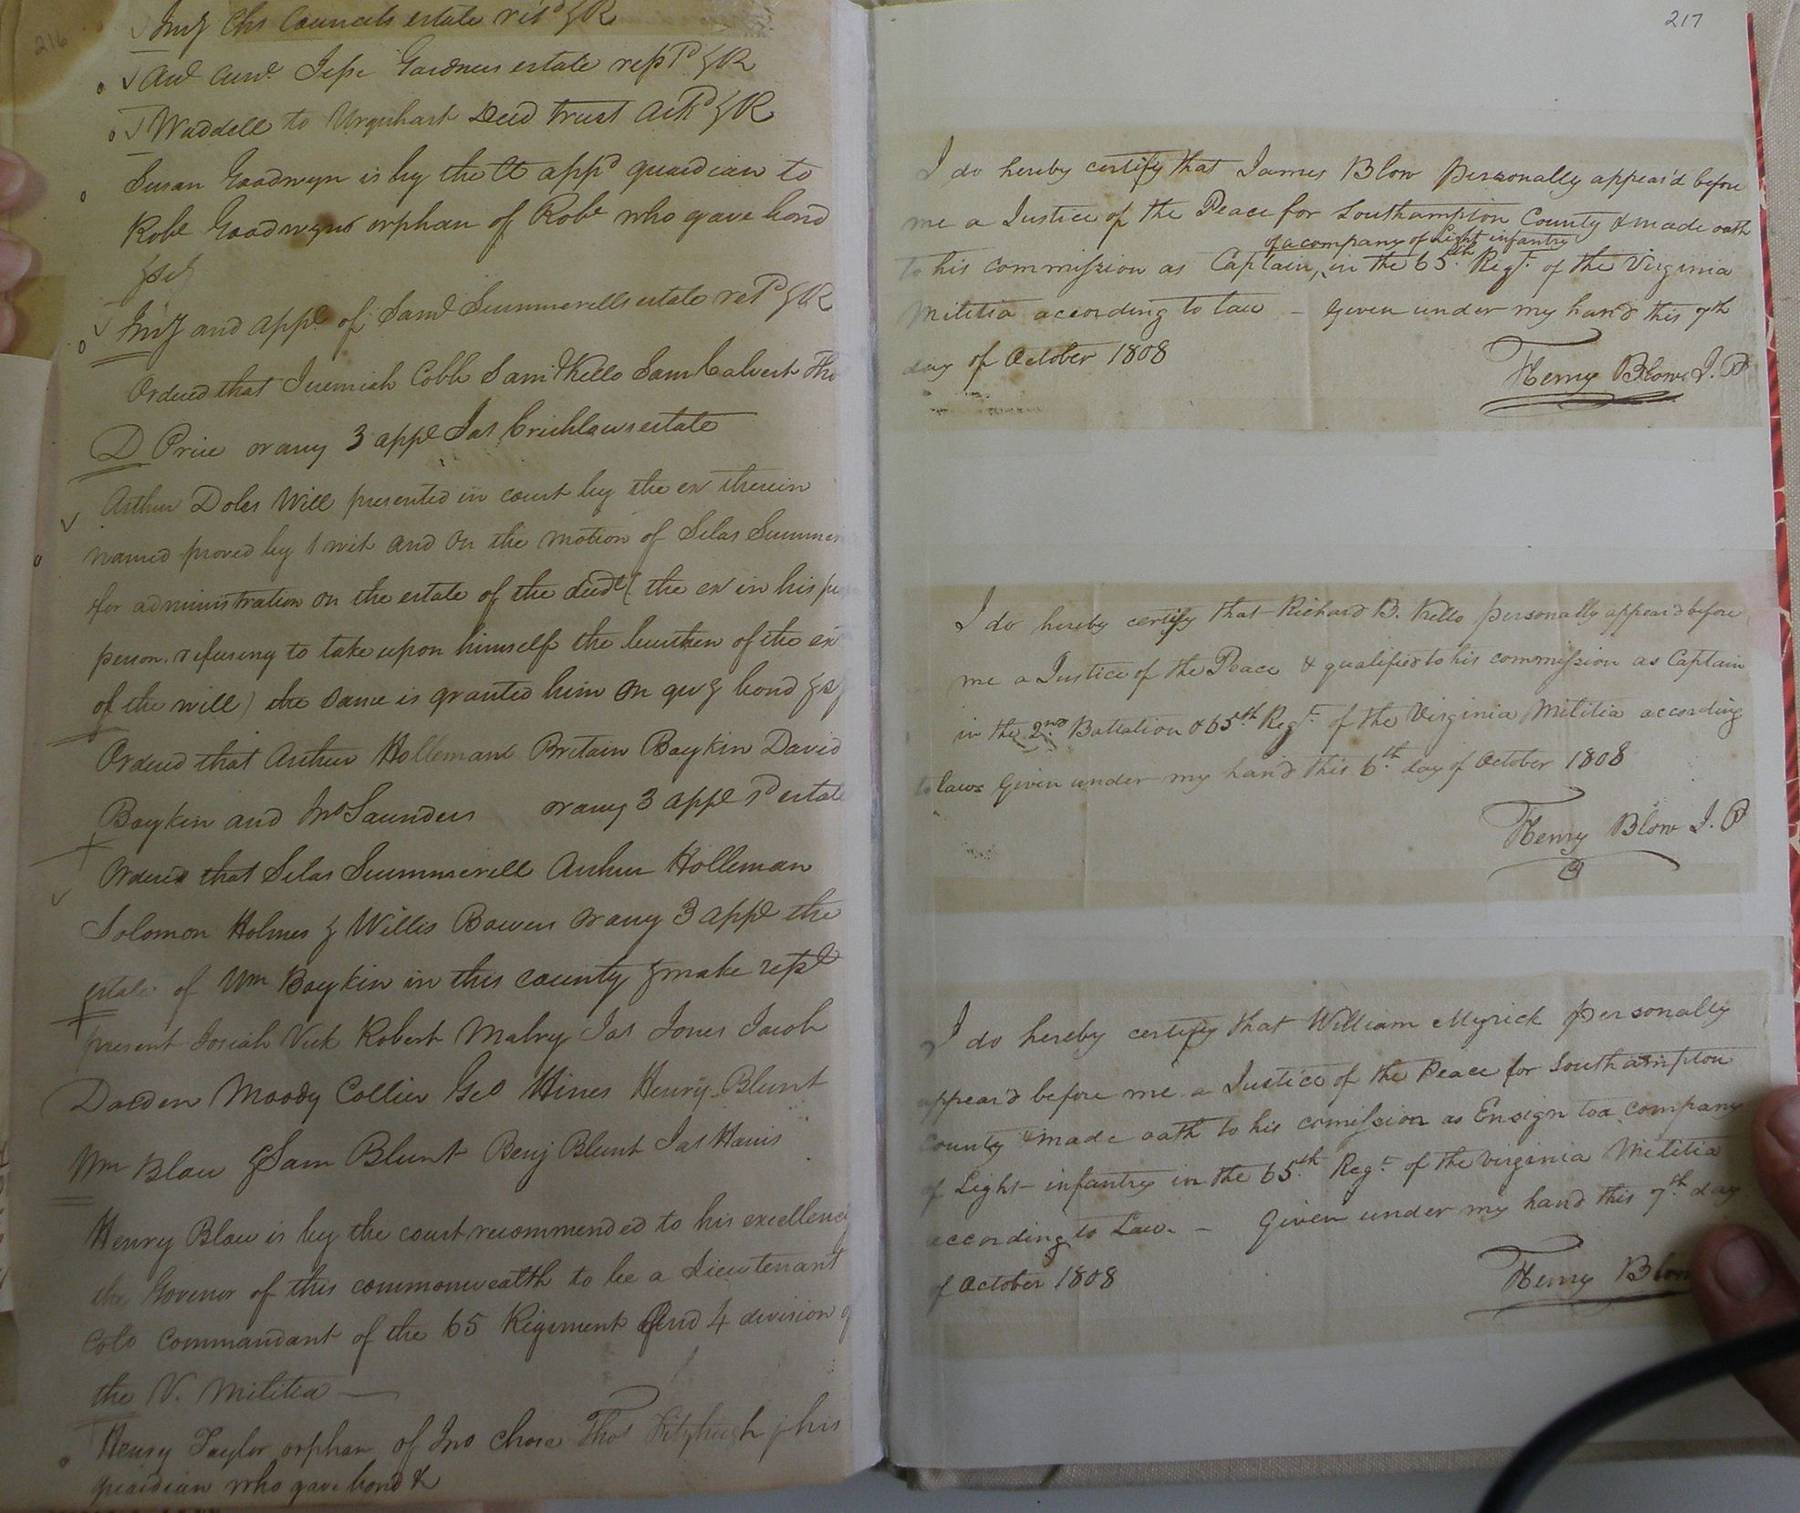 216
Invy Chs Councels estate ret^d & R
Aud Acn^t Jesse Gardners estate ret^d & R
Waddell to Urquhart Deed trust Ack^d & R
Susan Goodwyn is by the Ct app^d guardian to
Rob^t Goodwyn orphan of Rob^t who gave bond
&sey
Invy and app^t of Sam^l Summerells estate ret^d & R
Ordered that Jeremiah Cobb Saml Kello Sam Calvert Tho
D Price or any 3 app^e Jas Crichlows estate
Arthur Doles Will presented in court by the ex therein
named proved by 1 wit and on the motion of Silas Summer
for administration on the estate of the decd (the ex in his
person refusing to take upon himself the burthen of the ex
of the will) the same is granted him on gev^g bond &s
Ordered that Arthur Holleman Britain Boykin David
Boykin and Jno Saunders or any 3 app^e s^d estate
Ordered that Silas Summerell Arthur Holleman
Solomon Holmes & Willis Bowers or any 3 app^e the
estate of Wm Boykin in this county & make rep^t
present Josiah Vick Robert Malry Jas Jones Jacob
Darden Moody Collier Geo Hines Henry Blunt
Wm Blow & Sam Blunt Benj Blunt Jas Harris
Henry Blow is by the court recommended to his excellency
the Govenor of this commonwealth to be a Lieutenant
Colo Commandant of the 65 Regiment and 4 division of
the V. Militia
Henry Taylor orphan of Jno chose Tho^s Fitzhugh his
guardian who gave bond &
217
I do hereby certify that James Blow personally appear'd before
me a Justice of the Peace for Southampton County & made oath
of a company of Light infantry
to his commission as Captain, in the 65^th Reg^t. of the Virginia
Militia according to law – Given under my hand this 7th
day of October 1808
Henry Blow J. P
I do hereby certify that Richard B. Kello personally appear'd before
me a Justice of the Peace & qualified to his commission as Captain
in the 2^nd Battalion & 65^th Reg^t. of the Virginia Militia according
to law Given under my hand this 6^th day of October 1808
Henry Blow J. P
I do hereby certify that William Myrick personally
appear'd before me a Justice of the Peace for Southampton
County & made oath to his comission as Ensign to a company
of Light infantry in the 65^th Reg^t. of the Virginia Militia
according to Law. – Given under my hand this 7^th day
of October 1808
Henry Blow